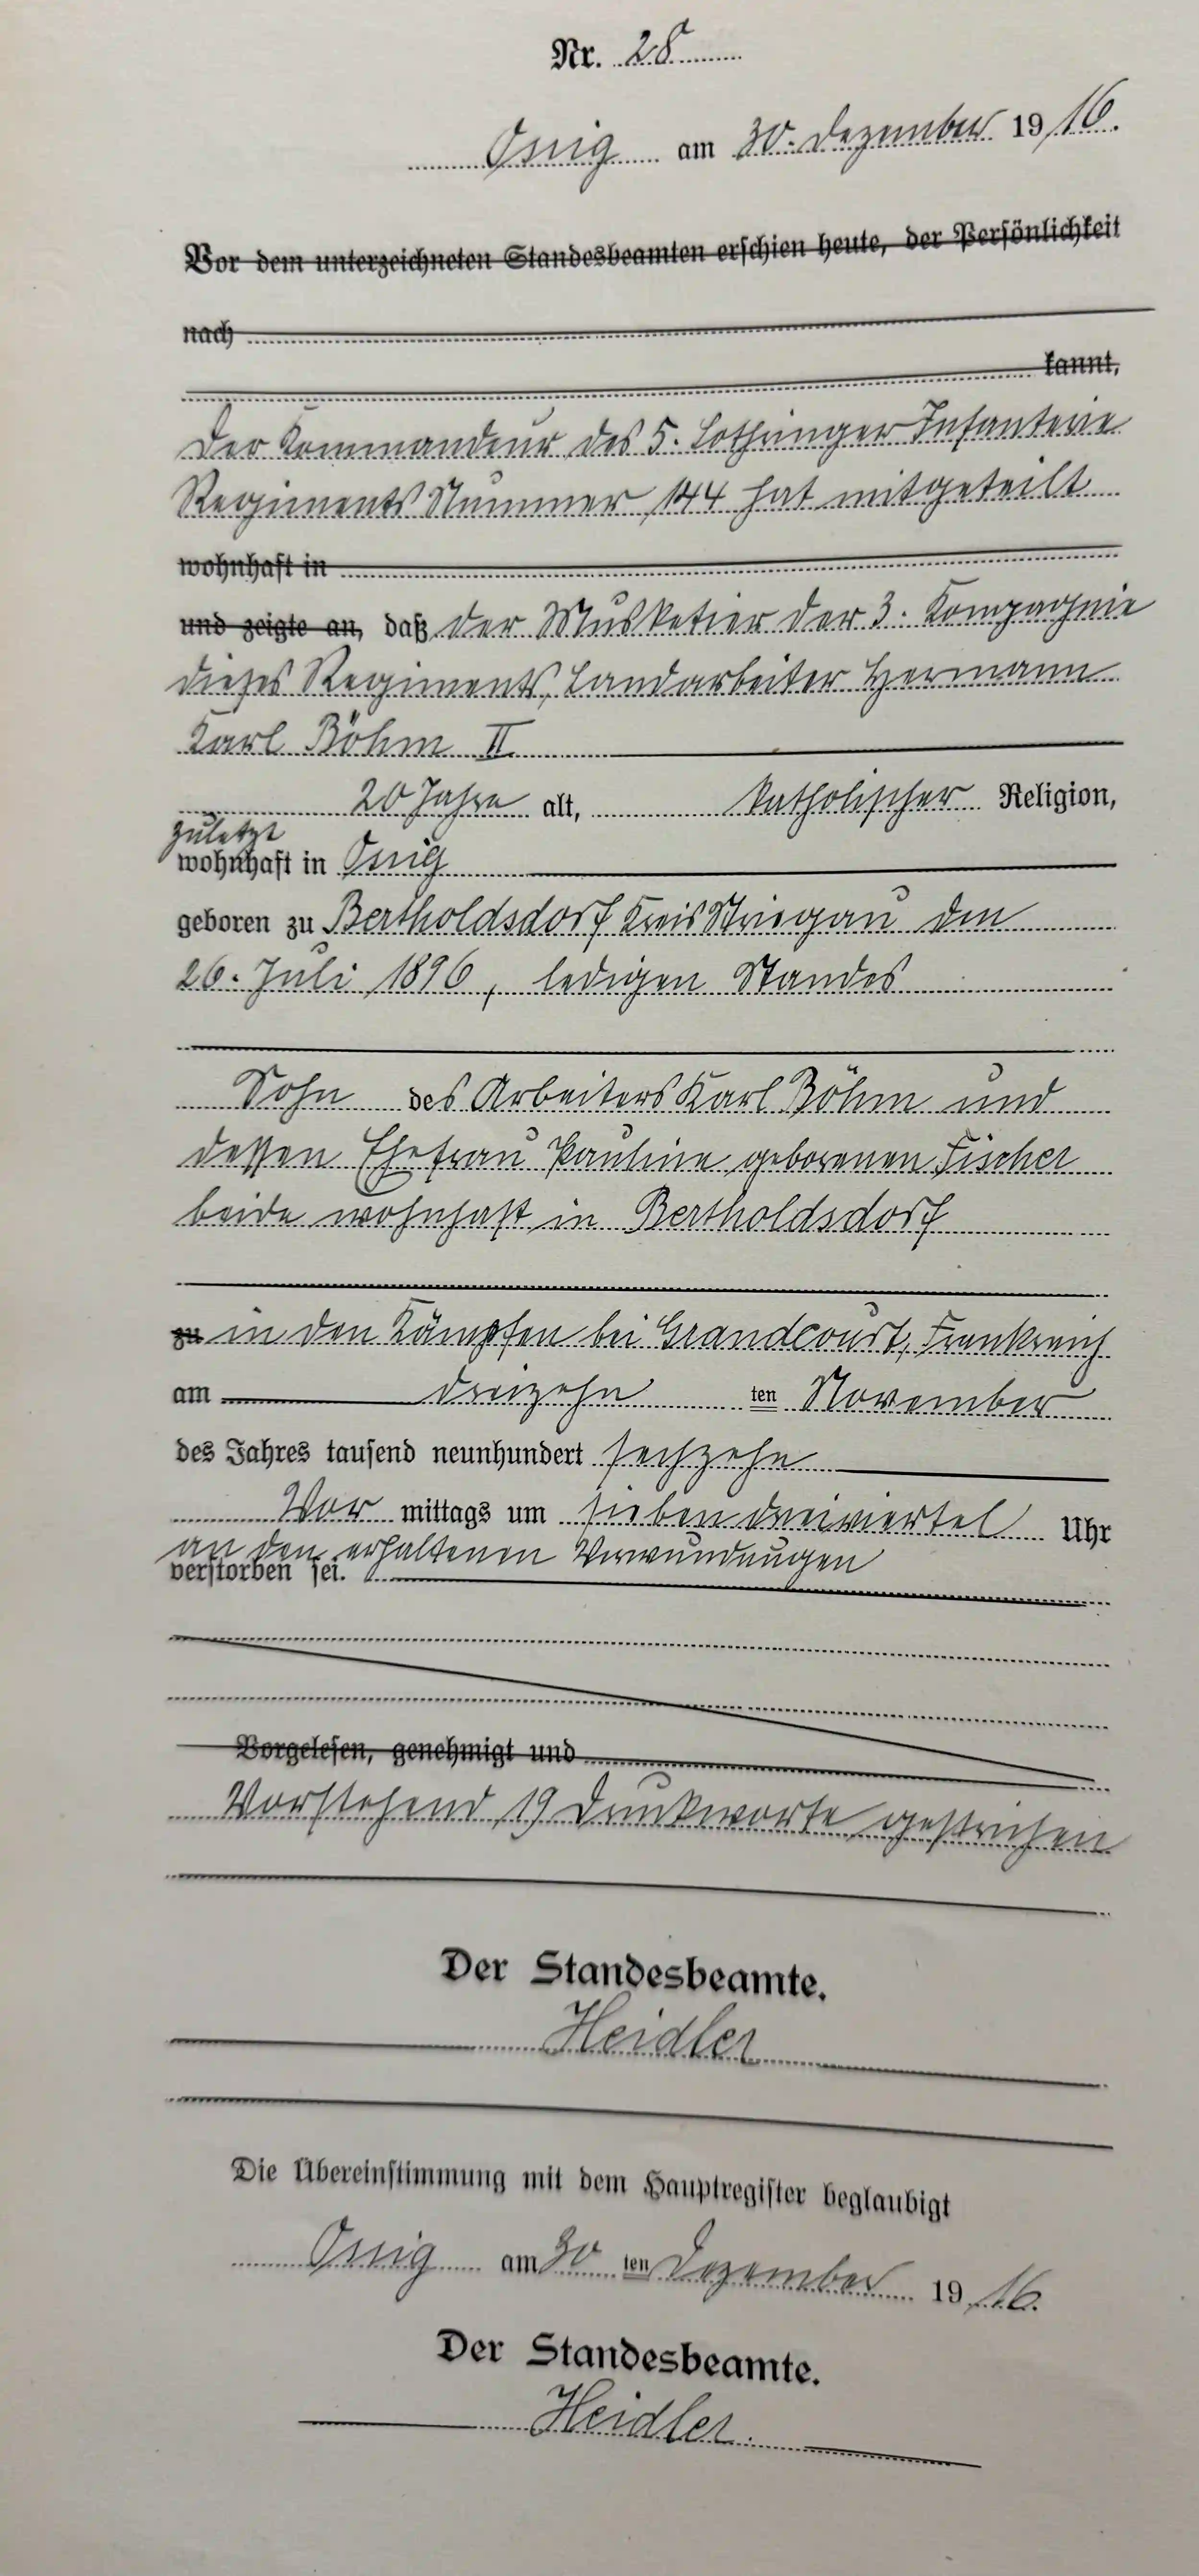 Nr. 28
Ossig am 30. Dezember 1916.
Vor dem unterzeichneten Standesbeamten erschien heute, der Persönlichkeit
nach
kannt,
Der Kommandeur des 5. Lothringer Infanterie
Regiments Nummer 144 hat mitgeteilt
wohnhaft in
und zeigte an, daß der Musketier der 3. Kompagnie
dieses Regiments, Landarbeiter Hermann
Karl Böhm II
20 Jahre alt, katholischer Religion,
zuletzt
wohnhaft in Ossig
geboren zu Bertholdsdorf Kreis Striegau den
26. Juli 1896, ledigen Standes
Sohn des Arbeiters Karl Böhm und
dessen Ehefrau Pauline geborenen Fischer
beide wohnhaft in Bertholdsdorf
zu in den Kämpfen bei Grandcourt, Frankreich
am dreizehn ten November
des Jahres tausend neunhundert sechzehn
Vor mittags um sieben dreiviertel Uhr
an den erhaltenen Verwundungen
verstorben sei.
Vorgelesen, genehmigt und
Vorstehend 19 Druckworte gestrichen
Der Standesbeamte.
Heidler
Die Übereinstimmung mit dem Hauptregister beglaubigt
Ossig am 30 ten Dezember 1916.
Der Standesbeamte.
Heidler.